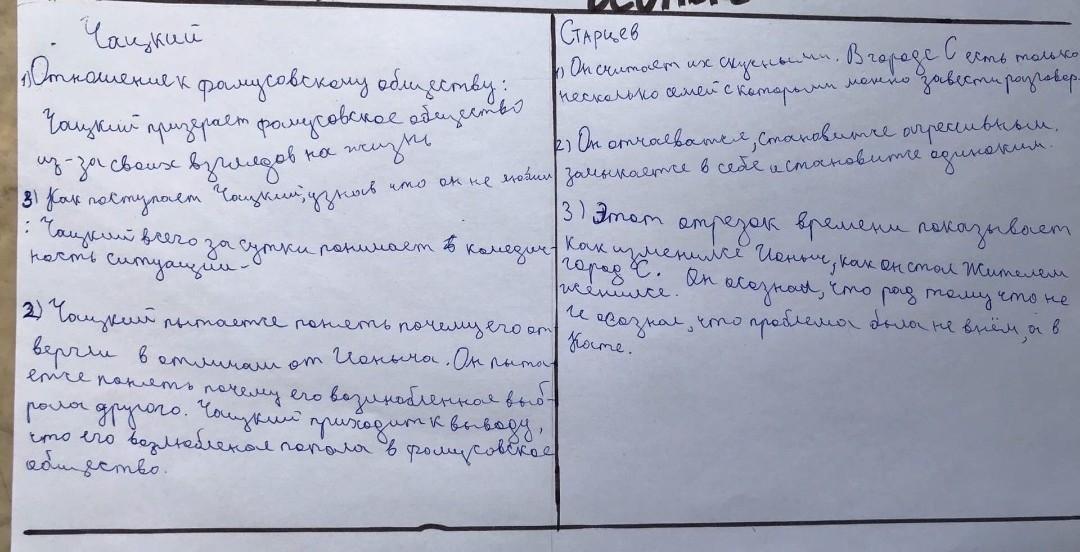 Чацкий
1) Отношение к фамусовскому обществу:
Чацкий призерает фамусовское общество
из-за своих взглядов на жизнь
3) Как поступает Чацкий, узнав что он не любим
: Чацкий всего за сутки понимает комедич-
ность ситуации-
2) Чацкий пытается понять почему его от
вергли в отличии от Ионыча. Он пыта-
ется понять почему его возлюбленная выб-
рала другого. Чацкий приходит к выводу,
что его возлюбленая попала в фамусовское
общество.
Старцев
1) Он считает их скучными. В городе С есть только
несколько семей с которыми можно завести разговор.
2) Он отчаевается, становится агрессивным.
замыкается в себе и становится одиноким.
3) Этот отрезок времени показывает
как изменился Ионыч, как он стал жителем
город С. Он осознал, что рад тому что не
женился.
И осознал, что проблема была не в нём, а в
Кате.